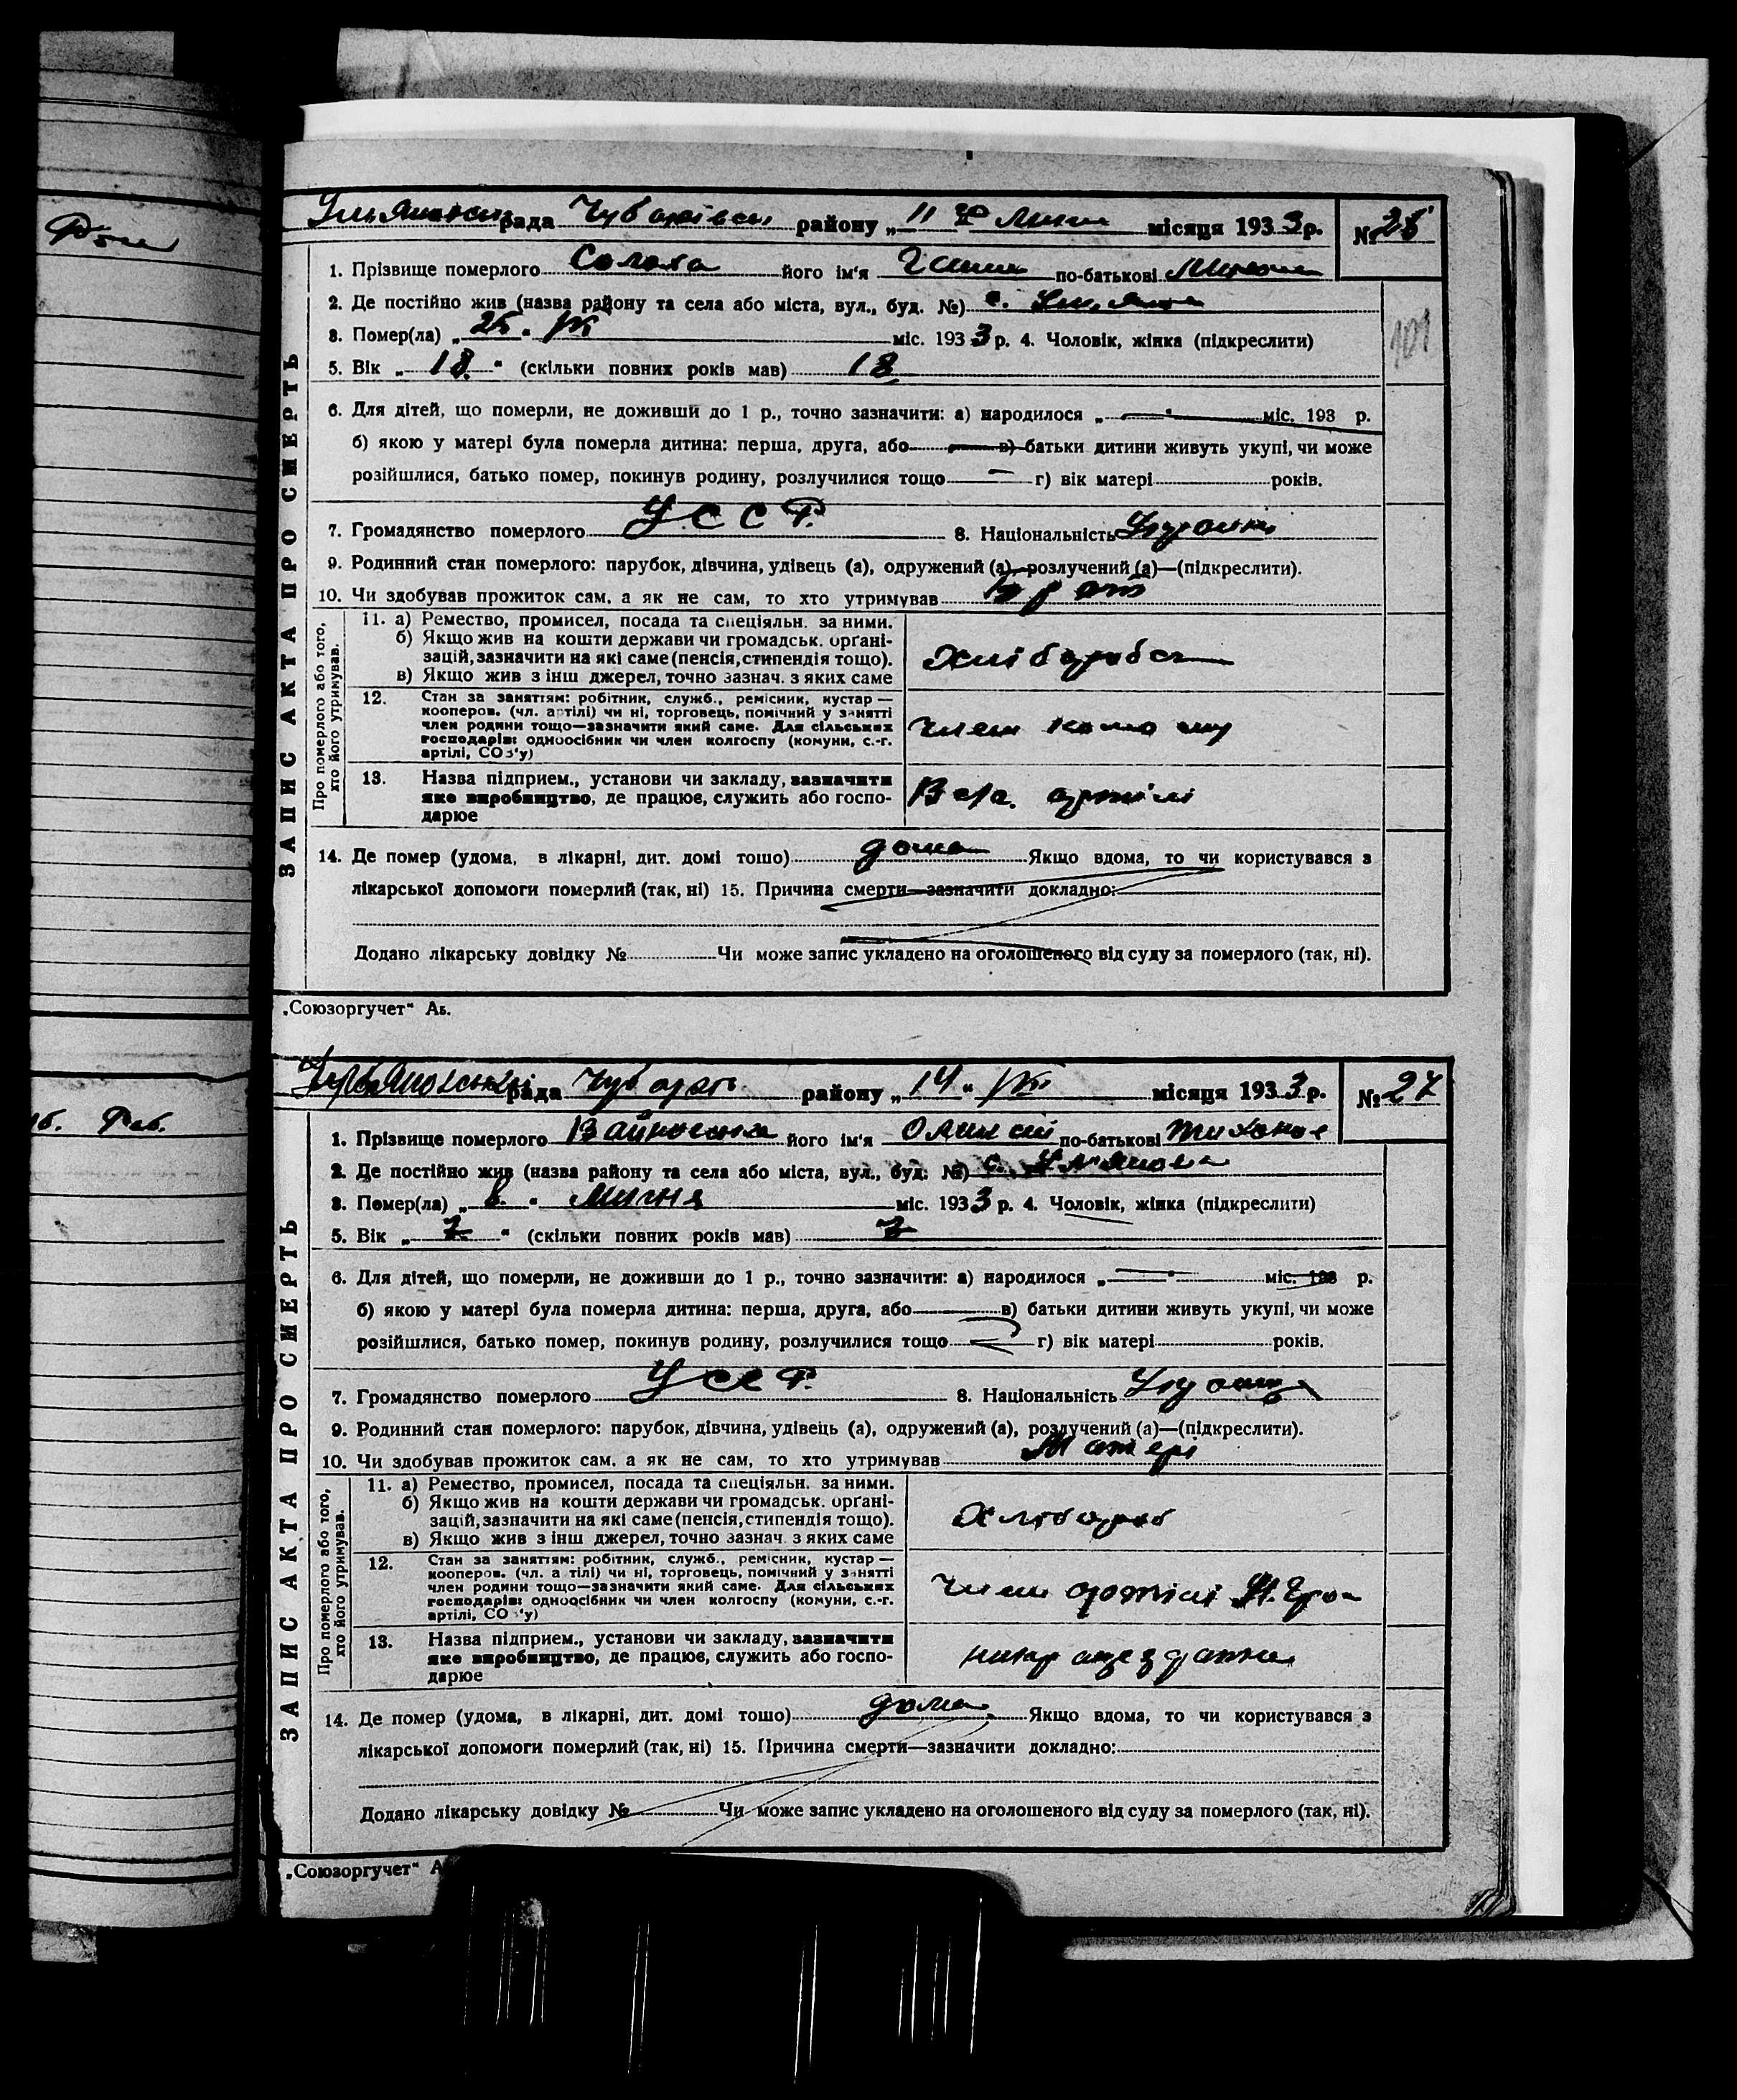 рада Чубарівськ району „ 11 місяця 1933 р. № 28
1. Прізвище померлого Солоха його ім'я Ганна по-батькові
2. Де постійно жив (назва району та села або міста, вул., буд. №) с.
3. Помер(ла) „ 25 " міс. 1933 р. 4. Чоловік, жінка (підкреслити)
5. Вік „ 18 " (скільки повних років мав) 18
6. Для дітей, що померли, не доживши до 1 р., точно зазначити: а) народилося „ — " міс. 193 р.
б) якою у матері була померла дитина: перша, друга, або — в) батьки дитини живуть укупі, чи може
розійшлися, батько помер, покинув родину, розлучилися тощо — г) вік матері років.
7. Громадянство померлого УССР 8. Національність
9. Родинний стан померлого: парубок, дівчина, удівець (а), одружений (а), розлучений (а)—(підкреслити).
10. Чи здобував прожиток сам, а як не сам, то хто утримував Брат
ЗАПИС АКТА ПРО СМЕРТЬ
Про померлого або того,
хто його утримував.
11. а) Ремество, промисел, посада та спеціяльн. за ними.
б) Якщо жив на кошти держави чи громадськ. орґані-
зацій, зазначити на які саме (пенсія, стипендія тощо).
в) Якщо жив з інш джерел, точно зазнач. з яких саме
Хлібороб
12. Стан за заняттям: робітник, служб., ремісник, кустар —
кооперов. (чл. артілі) чи ні, торговець, помічний у занятті
член родини тощо—зазначити який саме. Для сільських
господарів: одноосібник чи член колгоспу (комуни, с.-г.
артілі, СОЗ'у)
член
13. Назва підприєм., установи чи закладу, зазначити
яке виробництво, де працює, служить або госпо-
дарює
В артілі
14. Де помер (удома, в лікарні, дит. домі тошо) дома Якщо вдома, то чи користувався з
лікарської допомоги померлий (так, ні) 15. Причина смерти—зазначити докладно:
Додано лікарську довідку № Чи може запис укладено на оголошеного від суду за померлого (так, ні).
„Союзоргучет" Аь.
рада Чубарівс району „ 14 " місяця 1933 р. № 27
1. Прізвище померлого його ім'я Олексій по-батькові Тихонов
2. Де постійно жив (назва району та села або міста, вул., буд. №) с. Улянова
3. Помер(ла) „ 6 " міс. 1933 р. 4. Чоловік, жінка (підкреслити)
5. Вік „ 7 " (скільки повних років мав) 7
6. Для дітей, що померли, не доживши до 1 р., точно зазначити: а) народилося „ — " міс. 193 р.
б) якою у матері була померла дитина: перша, друга, або — в) батьки дитини живуть укупі, чи може
розійшлися, батько помер, покинув родину, розлучилися тощо — г) вік матері років.
7. Громадянство померлого УССР 8. Національність
9. Родинний стан померлого: парубок, дівчина, удівець (а), одружений (а), розлучений (а)—(підкреслити).
10. Чи здобував прожиток сам, а як не сам, то хто утримував Матері
ЗАПИС АКТА ПРО СМЕРТЬ
Про померлого або того,
хто його утримував.
11. а) Ремество, промисел, посада та спеціяльн. за ними.
б) Якщо жив на кошти держави чи громадськ. орґані-
зацій, зазначити на які саме (пенсія, стипендія тощо).
в) Якщо жив з інш джерел, точно зазнач. з яких саме
Хлібороб
12. Стан за заняттям: робітник, служб., ремісник, кустар —
кооперов. (чл. а тілі) чи ні, торговець, помічний у занятті
член родини тощо—зазначити який саме. Для сільських
господарів: одноосібник чи член колгоспу (комуни, с.-г.
артілі, СО 'у)
член артілі
13. Назва підприєм., установи чи закладу, зазначити
яке виробництво, де працює, служить або госпо-
дарює
14. Де помер (удома, в лікарні, дит. домі тошо) дома. Якщо вдома, то чи користувався з
лікарської допомоги померлий (так, ні) 15. Причина смерти—зазначити докладно:
Додано лікарську довідку № Чи може запис укладено на оголошеного від суду за померлого (так, ні).
„Союзоргучет" А